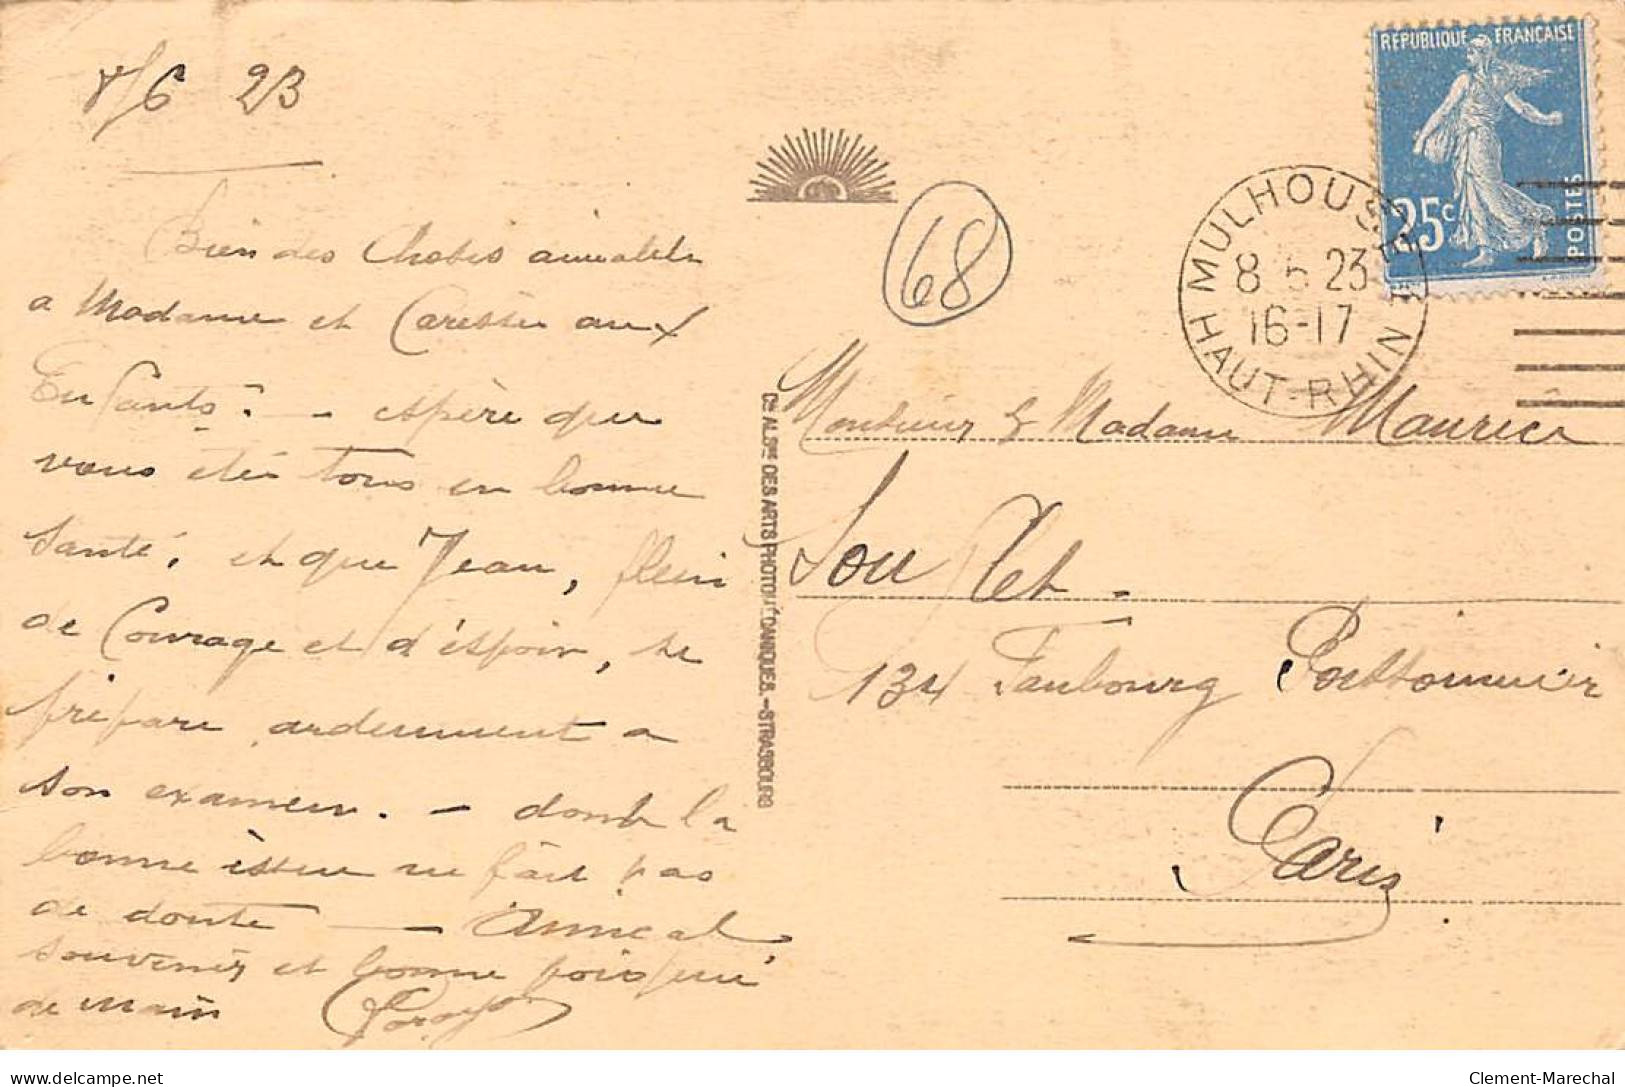 8/6 23
Bien des choses aimables
a Madame et Caresses aux
Enfants. - espère que
vous etes tous en bonne
santé, et que Jean, plein
de Courage et d'espoir, se
prépare ardemment a
son examen. - dont la
bonne issue ne fait pas
de doute - Amical
souvenir et bonne poignée
de main
68
RÉPUBLIQUE FRANÇAISE
25c
POSTES
MULHOUSE
8 6 23
16-17
HAUT-RHIN
Monsieur & Madame Maurice
Soufflet.
134 Faubourg Poissonnier
Paris
Cie ALSNE DES ARTS PHOTOMÉCANIQUES.-STRASBOURG
delcampe.net
Clement-Marechal